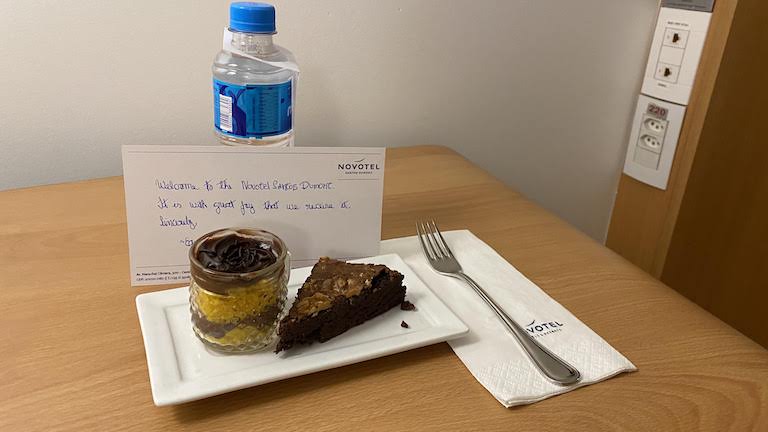 NOVOTEL
SANTOS DUMONT
Welcome to the Novotel Santos Dumont.
It is with great joy that we receive it.
Sincerely,
Av. Marechal Câmara, 300 -
NOVOTEL
220